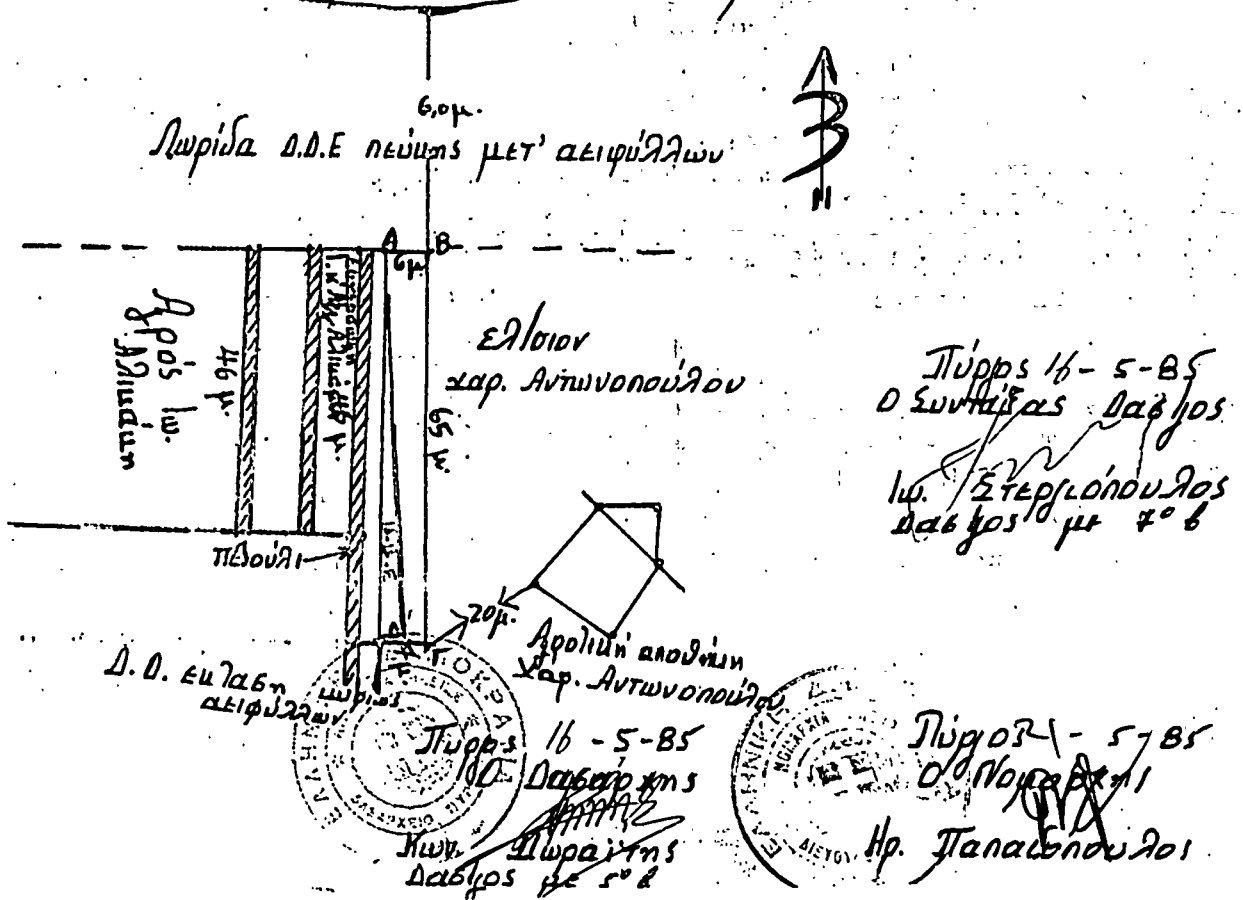 6,0μ.
Λωρίδα Δ.Δ.Ε πεύκης μετ' αειφύλλων
Α Β
6μ.
Αγρός Ιω.
Αλικάκη
46 μ.
ελ/σιον
χαρ. Αντωνοπούλου
65 μ.
Πύργος 16-5-85
Ο Συντάξας Δασ/γος
Ιω. Στεργιόπουλος
Δασ/γος με 7ο β
πεζούλι
20μ.
Γ
Αγροτική αποθήκη
Χαρ. Αντωνοπούλου
Δ.Δ. έκταση
αειφύλλων
Πύργος 16-5-85
Ο Δασάρχης
Κων. Μωραΐτης
Δασ/γος με 5ο β
Πύργος 21-5-85
Ο Νομάρχης
Ηρ. Παπαιόπουλος